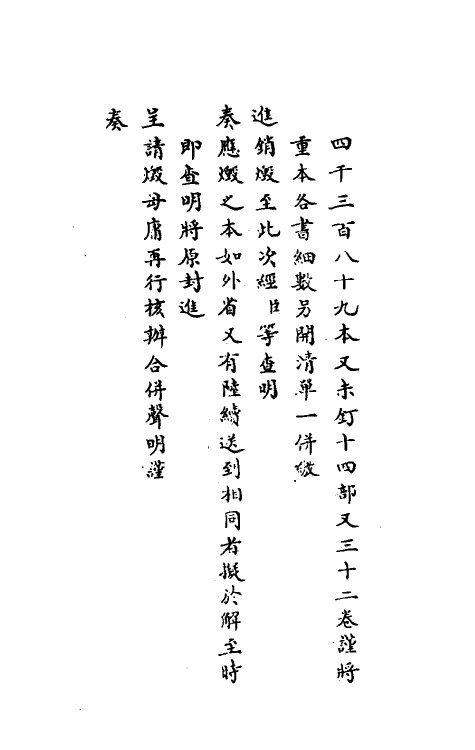 四千三百八十九本又未釘十四部又三十二卷謹將
重本各書細數另開清單一併繳
進銷燬至此次經臣等查明
奏應燬之本如外省又有陸續送到相同者擬於解至時
即查明將原封進
呈請燬毋庸再行核辦合併聲明謹
奏